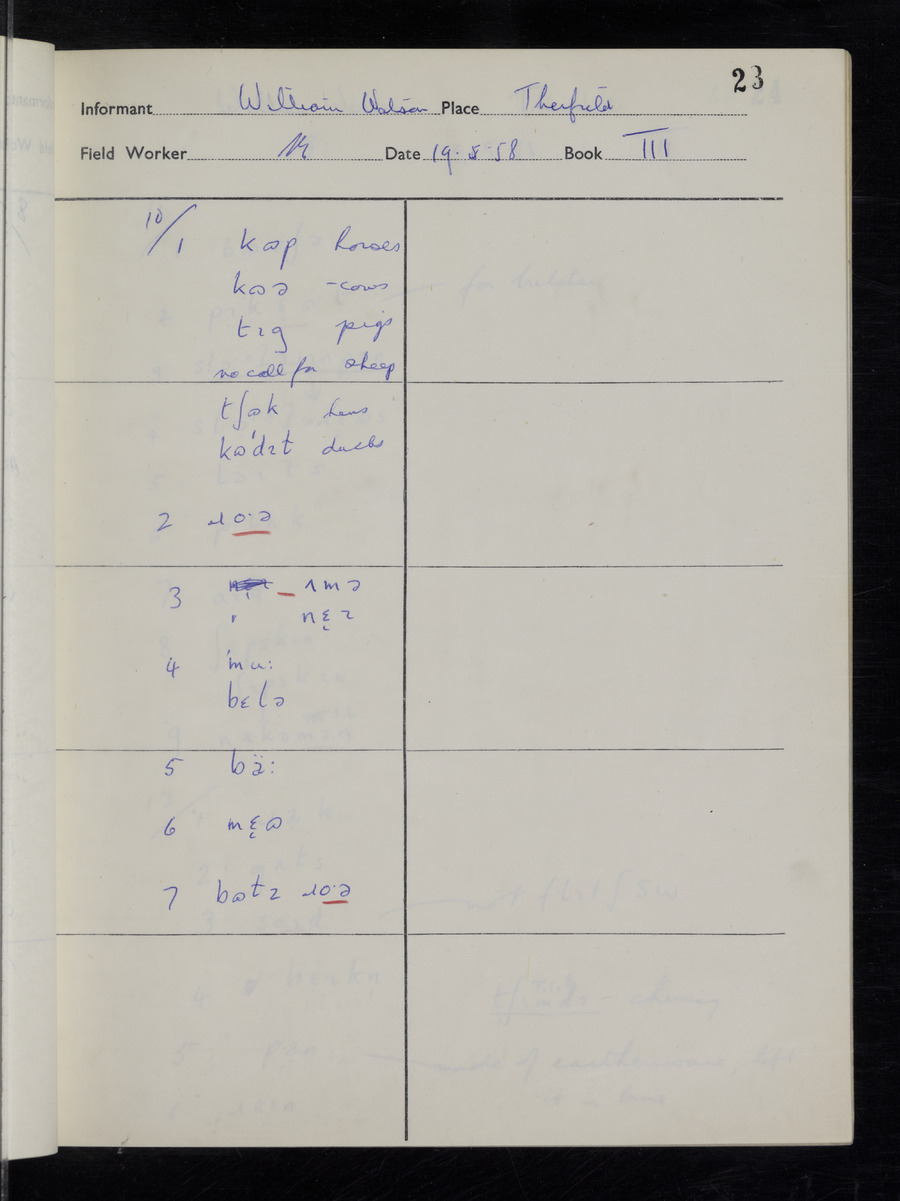 23
Informant William Watson Place Therfield
Field Worker Date 19.5.58 Book III
10/1 kɷp horses
kɷə - cows
tɪg pigs
no call for sheep
tʃɷk hens
kɷ'dɪt ducks
2 ɹo·ə
3
4 mu:
bɛlə
5 bä:
6 mɛ̨ɷ
7 bɷtɪ ɹo·ə